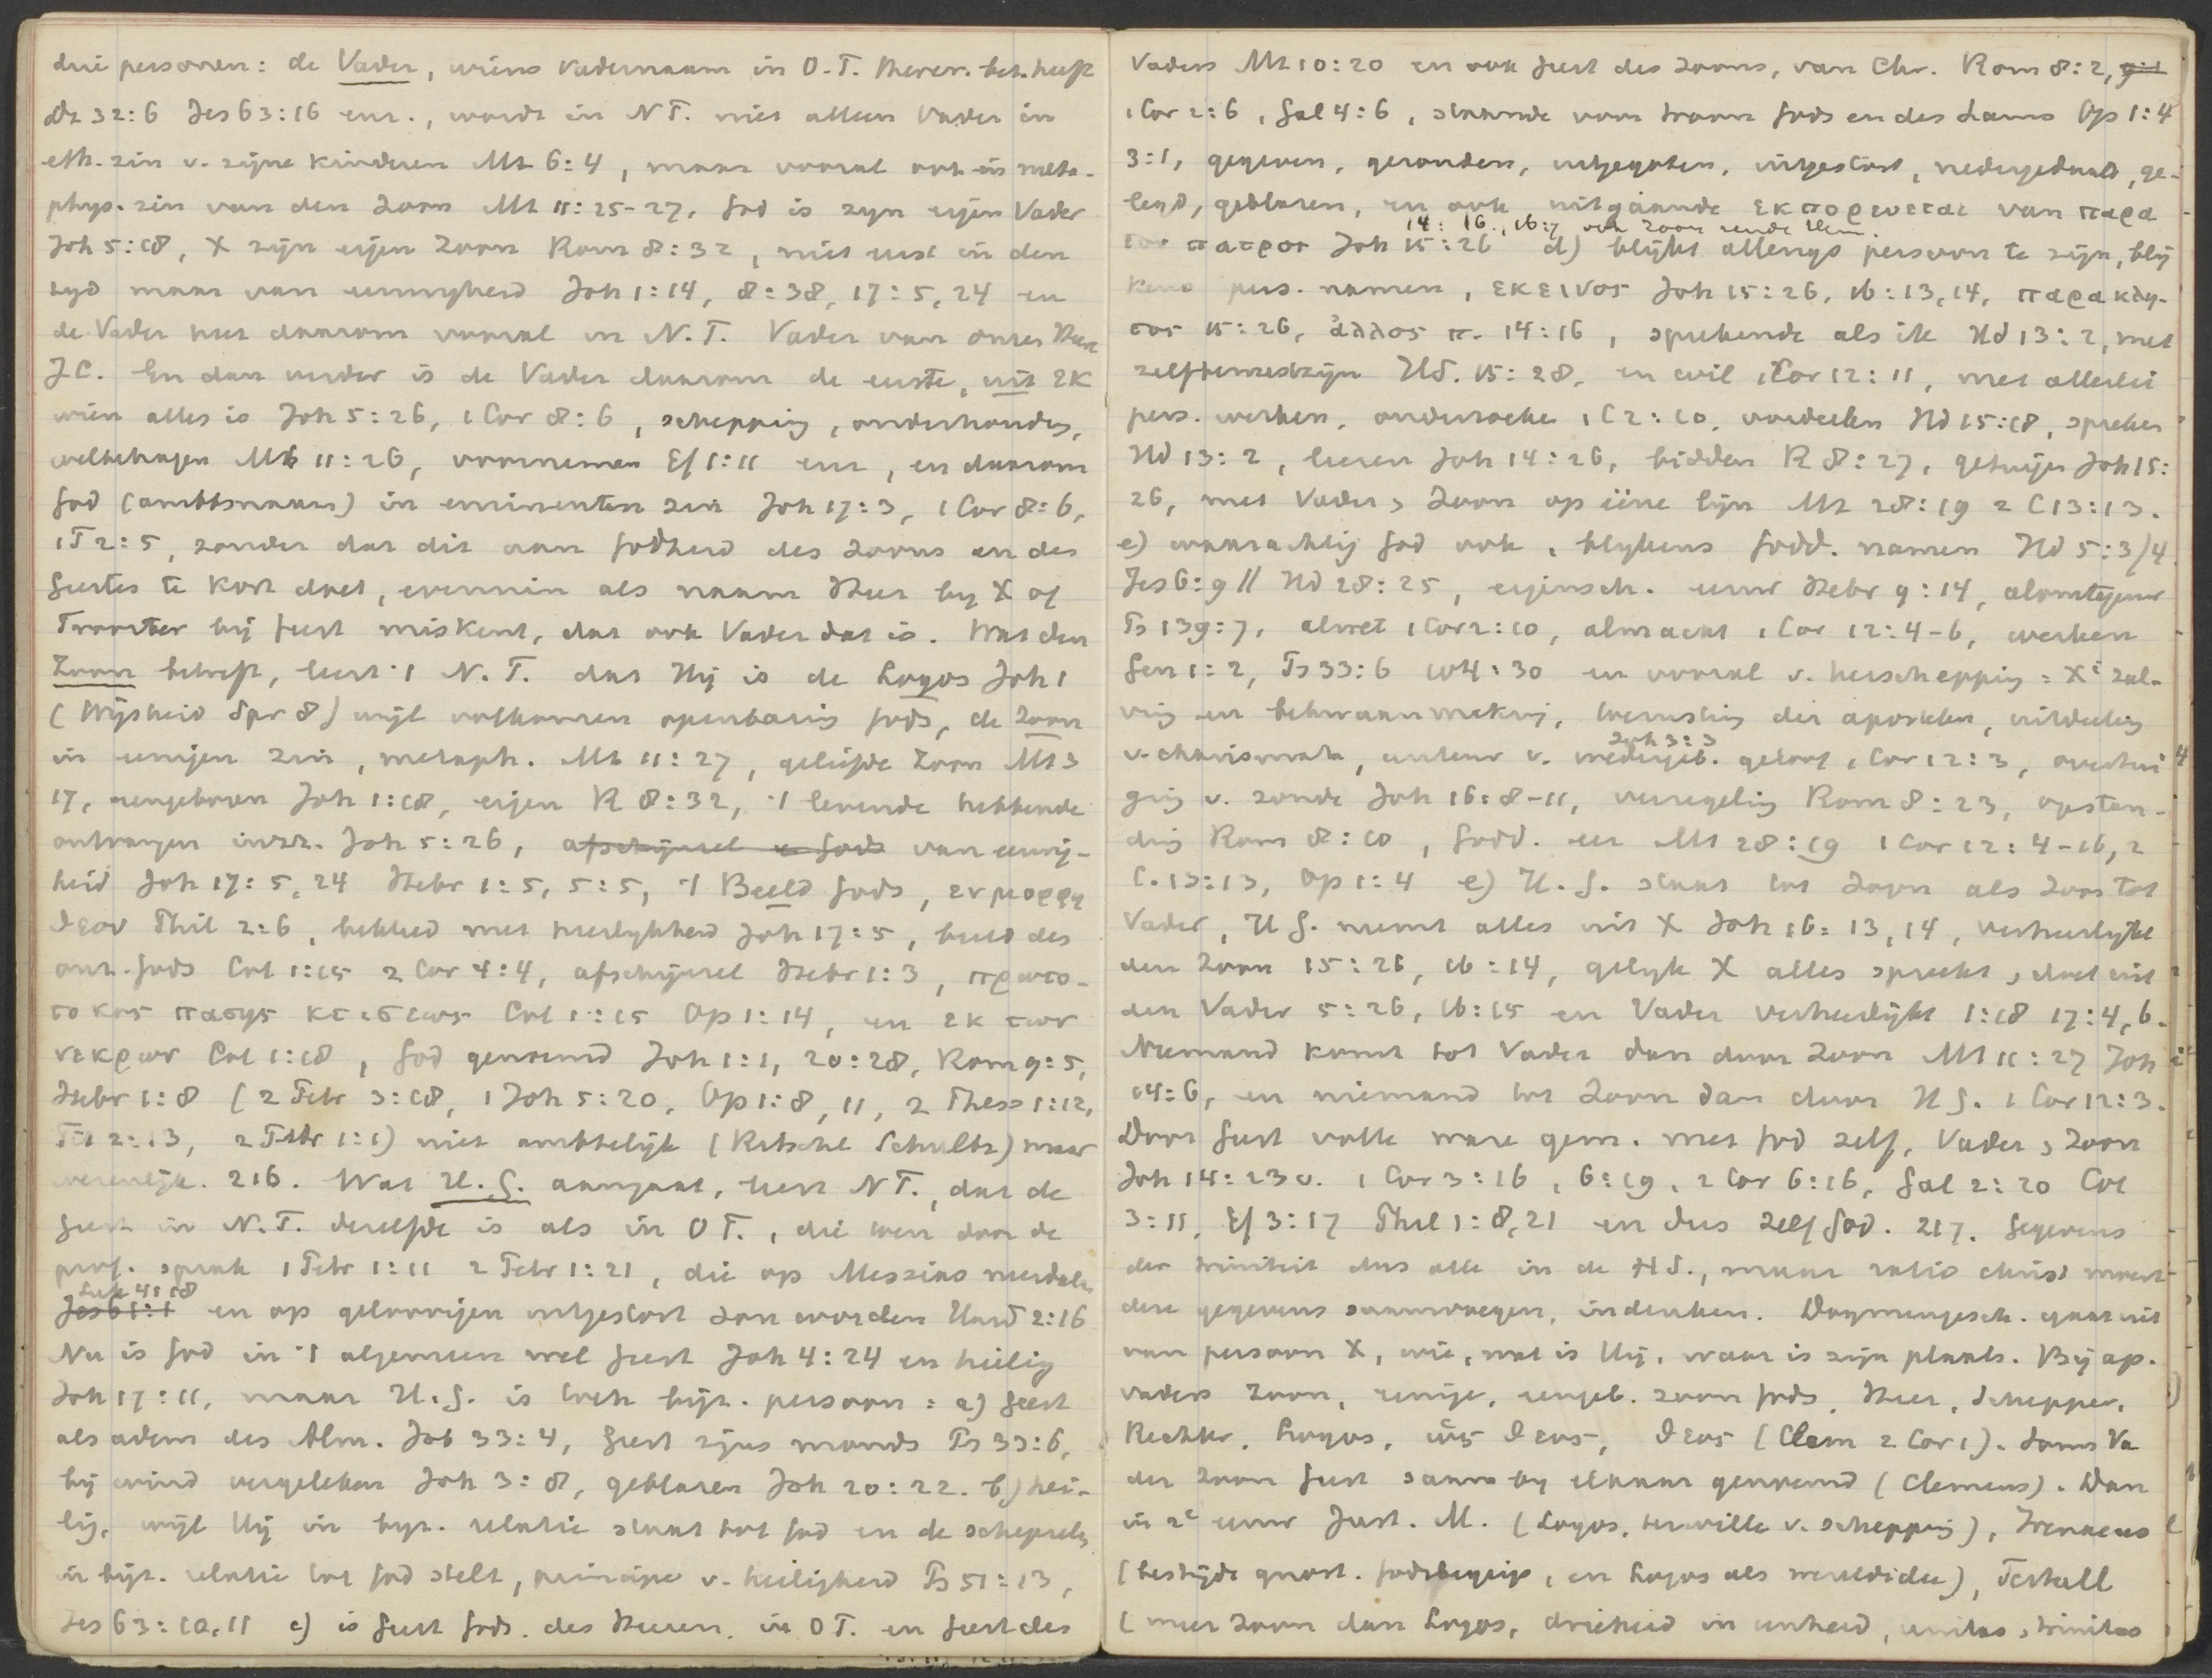 drie personen: de Vader, wiens Vadernaam in O.T. theocr. bet. heeft
Dt 32:6 Jes 63:16 enz., wordt in N T. niet alleen Vader in
eth. zin v. zijne kinderen Mt 6:4, maar vooral ook in meta-
phys. zin van den Zoon Mt 11:25-27. God is zyn eigen Vader
Joh 5:18, X zijn eigen Zoon Rom 8:32, niet eerst in den
tyd maar van eeuwigheid Joh 1:14, 8:38, 17:5,24 en
de Vader heet daarom vooral in N.T. Vader van onzen Heere
J.C. En dan verder is de Vader daarom de eerste, uit εκ
wien alles is Joh 5:26, 1 Cor 8:6, schepping, onderhouding,
welbehagen Mt 11:26, voornemen Ef 1:11 enz, en daarom
God (ambtsnaam) in eminenten zin Joh 17:3, 1 Cor 8:6,
1T 2:5, zonder dat dit aan Godheid des Zoons en des
Geestes te kort doet, evenmin als naam Heer by X of
Trooster bij Geest miskent, dat ook Vader dat is. Wat den
Zoon betreft, leert 't N.T. dat Hij is de Logos Joh 1
(Wijsheid Spr 8) wijl volkomen openbaring Gods, de Zoon
in eenigen zin, metaph. Mt 11:27, geliefde Zoon Mt 3
17, eengeboren Joh 1:18, eigen R 8:32, 't levende hebbende
ontvangen in zich. Joh 5:26, afschijnsel v. Gods van eeuwig-
heid Joh 17:5,24 Hebr 1:5, 5:5, 't Beeld Gods, εν μορφη
θεου Phil 2:6, bekleed met heerlykheid Joh 17:5, beeld des
onz. Gods Col 1:15 2 Cor 4:4, afschijnsel Hebr 1:3, πρωτο-
τοκος πασης κτισεως Col 1:15 Op 1:14, en εκ των
νεκρων Col 1:18, God genoemd Joh 1:1, 20:28, Rom 9:5,
Hebr 1:8 (2 Petr 3:18, 1 Joh 5:20, Op 1:8,11, 2 Thess 1:12,
Tit 2:13, 2 Petr 1:1) niet ambtelijk (Ritschl Schultz) maar
wezenlijk. 216. Wat H.G. aangaat, leert N T., dat de
Geest in N.T. dezelfde is als in O T., die toen door de
prof. sprak 1 Petr 1:11 2 Petr 1:21, die op Messias nederdale
Luk 4:18
Jes 61:1 en op geloovigen uitgestort zou worden Hand 2:16
Nu is God in 't algemeen wel Geest Joh 4:24 en heilig
Joh 17:11, maar H.G. is toch byz. persoon: a) Geest
als adem des Alm. Job 33:4, Geest zyns monds Ps 33:6,
bij wind vergeleken Joh 3:8, geblazen Joh 20:22. b) hei-
lig, wijl Hij in byz. relatie staat tot God en de schepselen
in bijz. relatie tot God stelt, principe v. heiligheid Ps 51:13,
Jes 63:10,11 c) is Geest Gods, des Heeren, in O T. en Geest des
Vaders Mt 10:20 en ook Geest des Zoons, van Chr. Rom 8:2, 9:1
1 Cor 2:6, Gal 4:6, staande voor troon Gods en des Lams Op 1:4
3:1, gegeven, gezonden, uitgegoten, uitgestort, nedergedaald, ge-
legd, geblazen, en ook uitgaande εκπορευεται van παρα
14:16, 16:7 ook Zoon zende Hem.
του πατρος Joh 15:26 d) blijkt allengs persoon te zijn, blij
kens pers. namen, εκεινος Joh 15:26, 16:13,14, παρακλη-
τος 15:26, ἀλλος π. 14:16, sprekende als ik Hd 13:2, met
zelfbewustzijn Hd. 15:28, en wil 1 Cor 12:11, met allerlei
pers. werken, onderzoeken 1 C 2:10, oordeelen Hd 15:18, spreken
Hd 13:2, leeren Joh 14:26, bidden R 8:27, getuigen Joh 15:
26, met Vader & Zoon op ééne lijn Mt 28:19 2 C 13:13.
e) waarachtig God ook, blykens Godd. namen Hd 5:3/4
Jes 6:9 // Hd 28:25, eigensch. eeuw Hebr 9:14, alomtegenw
Ps 139:7, alwet 1 Cor 2:10, almacht 1 Cor 12:4-6, werken
Gen 1:2, Ps 33:6 104:30 en vooral v. herschepping = X' zal-
ving en bekwaammaking, toerusting der apostelen, uitdeeling
Joh 3:3
v. charismata, auteur v. wedergeb. geloof 1 Cor 12:3, overtui
ging v. zonde Joh 16:8-11, verzegeling Rom 8:23, opstan-
ding Rom 8:10, Godd. eer Mt 28:19 1 Cor 12:4-16, 2
C. 13:13, Op 1:4 e) H.G. staat tot Zoon als Zoon tot
Vader, H G. neemt alles uit X Joh 16:13,14, verheerlykt
den Zoon 15:26, 16:14, gelyk X alles spreekt, doet uit
den Vader 5:26, 16:15 en Vader verheerlijkt 1:18 17:4,6.
Niemand komt tot Vader dan door Zoon Mt 11:27 Joh
14:6, en niemand tot Zoon dan door H G. 1 Cor 12:3.
Door Geest volle ware gem. met God zelf, Vader & Zoon
Joh 14:23 v. 1 Cor 3:16, 6:19, 2 Cor 6:16, Gal 2:20 Col
3:11, Ef 3:17 Phil 1:8,21 en dus zelf God. 217. Gegevens
der triniteit dus alle in de H S., maar ratio christ moest
deze gegevens saamvoegen, indenken. Dogmengesch. gaat uit
van persoon X, wie, wat is Hij, waar is zijn plaats. Bij ap.
vaders Zoon, eenige, eengeb. zoon Gods, Heer, Schepper,
Rechter, Logos, ὡς θεος, θεος (Clem 2 Cor 1). Soms Va
der Zoon Geest saam by elkaar genoemd (Clemens). Dan
in 2e eeuw Just. M. (Logos, terwille v. schepping), Irenaeus
(bestrijdt gnost. Godsbegrip, en Logos als wereldidee), Tertull
(meer Zoon dan Logos, drieheid in eenheid, unitas, trinitas